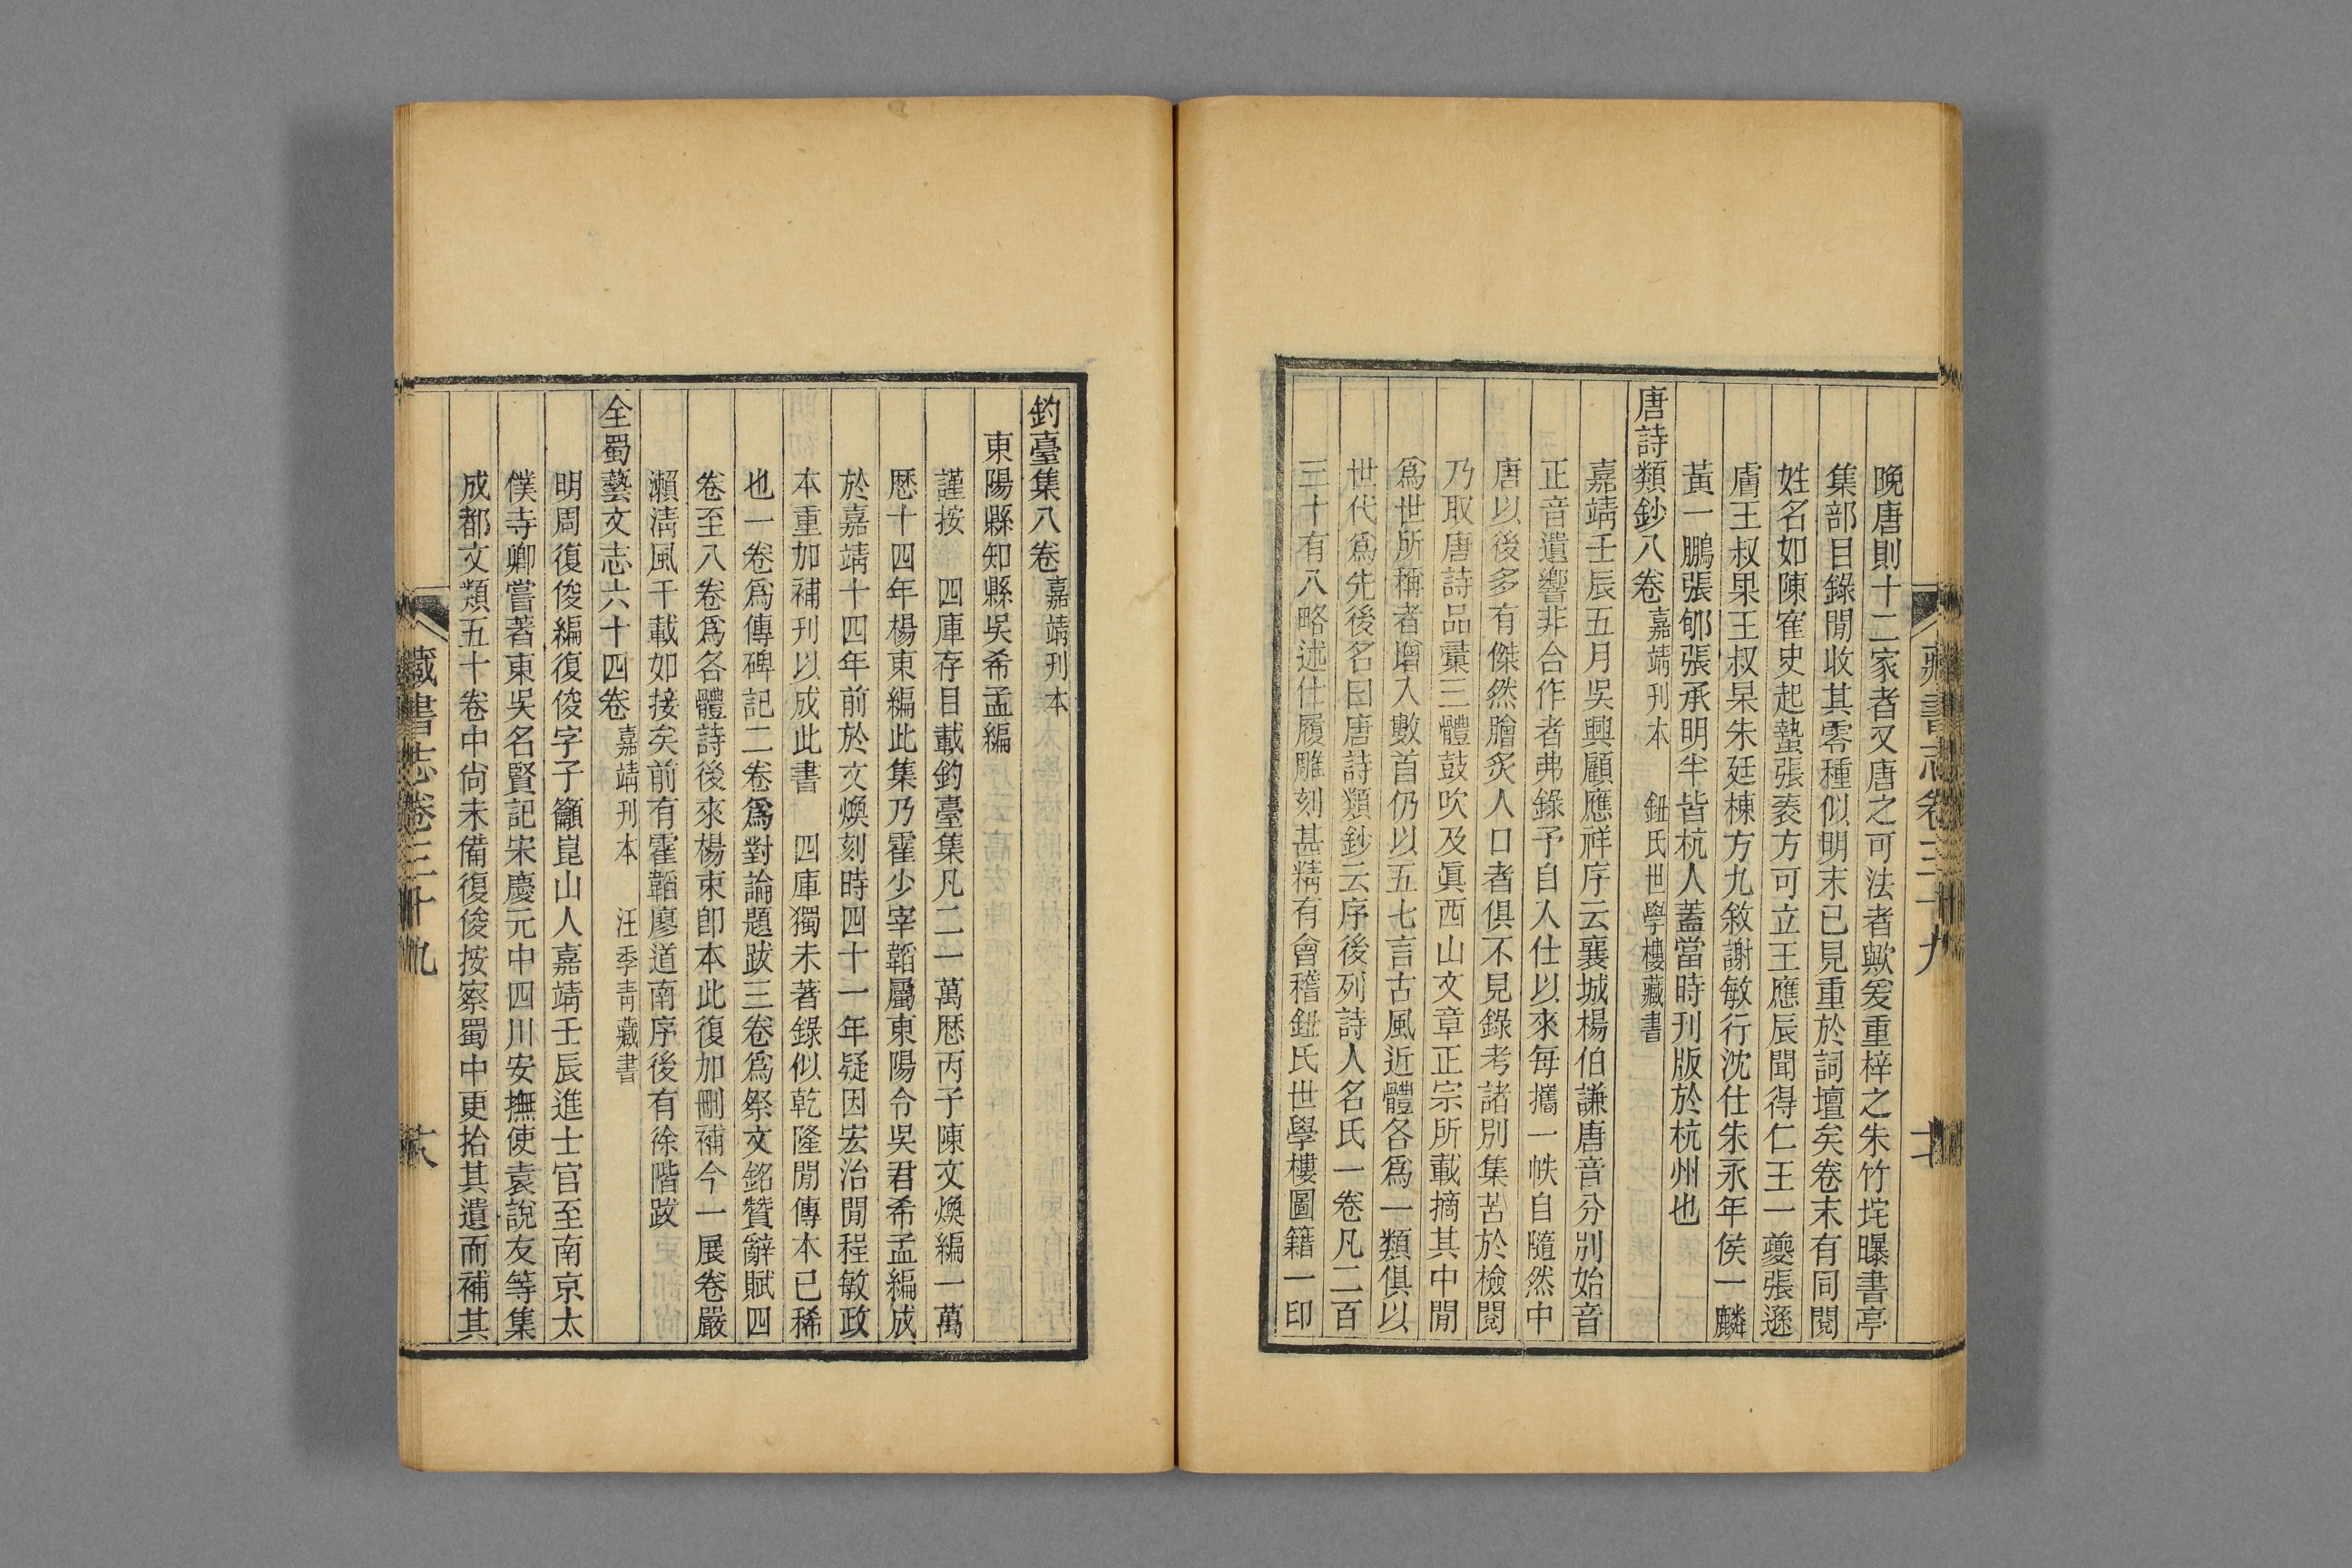 藏書志卷三十九
晚唐則十二家者又唐之可法者歟爰重梓之朱竹垞曝書亭
集部目錄閒收其零種似明末已見重於詞壇矣卷末有同閱
姓名如陳寉史起蟄張袠方可立王應辰聞得仁王一夔張遜
膚王叔果王叔杲朱廷棟方九敘謝敏行沈仕朱永年侯一麟
黃一鵬張郇張承明半皆杭人蓋當時刊版於杭州也
唐詩類鈔八卷嘉靖刊本 鈕氏世學樓藏書
嘉靖壬辰五月吳興顧應祥序云襄城楊伯謙唐音分別始音
正音遺響非合作者弗錄予自入仕以來每攜一帙自隨然中
唐以後多有傑然膾炙人口者俱不見錄考諸別集苦於檢閱
乃取唐詩品彙三體鼓吹及眞西山文章正宗所載摘其中閒
爲世所稱者增入數首仍以五七言古風近體各爲一類俱以
世代爲先後名曰唐詩類鈔云序後列詩人名氏一卷凡二百
三十有八略述仕履雕刻甚精有會稽鈕氏世學樓圖籍一印
釣臺集八卷嘉靖刊本
東陽縣知縣吳希孟編
謹按 四庫存目載釣臺集凡二一萬厯丙子陳文煥編一萬
厯十四年楊東編此集乃霍少宰韜屬東陽令吳君希孟編成
於嘉靖十四年前於文煥刻時四十一年疑因宏治閒程敏政
本重加補刊以成此書 四庫獨未著錄似乾隆閒傳本已稀
也一卷爲傳碑記二卷爲對論題跋三卷爲祭文銘贊辭賦四
卷至八卷爲各體詩後來楊束卽本此復加刪補今一展卷嚴
瀨淸風千載如接矣前有霍韜廖道南序後有徐階跋
全蜀藝文志六十四卷嘉靖刊本 汪季靑藏書
明周復俊編復俊字子籲崑山人嘉靖壬辰進士官至南京太
僕寺卿嘗著東吳名賢記宋慶元中四川安撫使袁說友等集
成都文類五十卷中尙未備復俊按察蜀中更拾其遺而補其
藏書志卷三十九